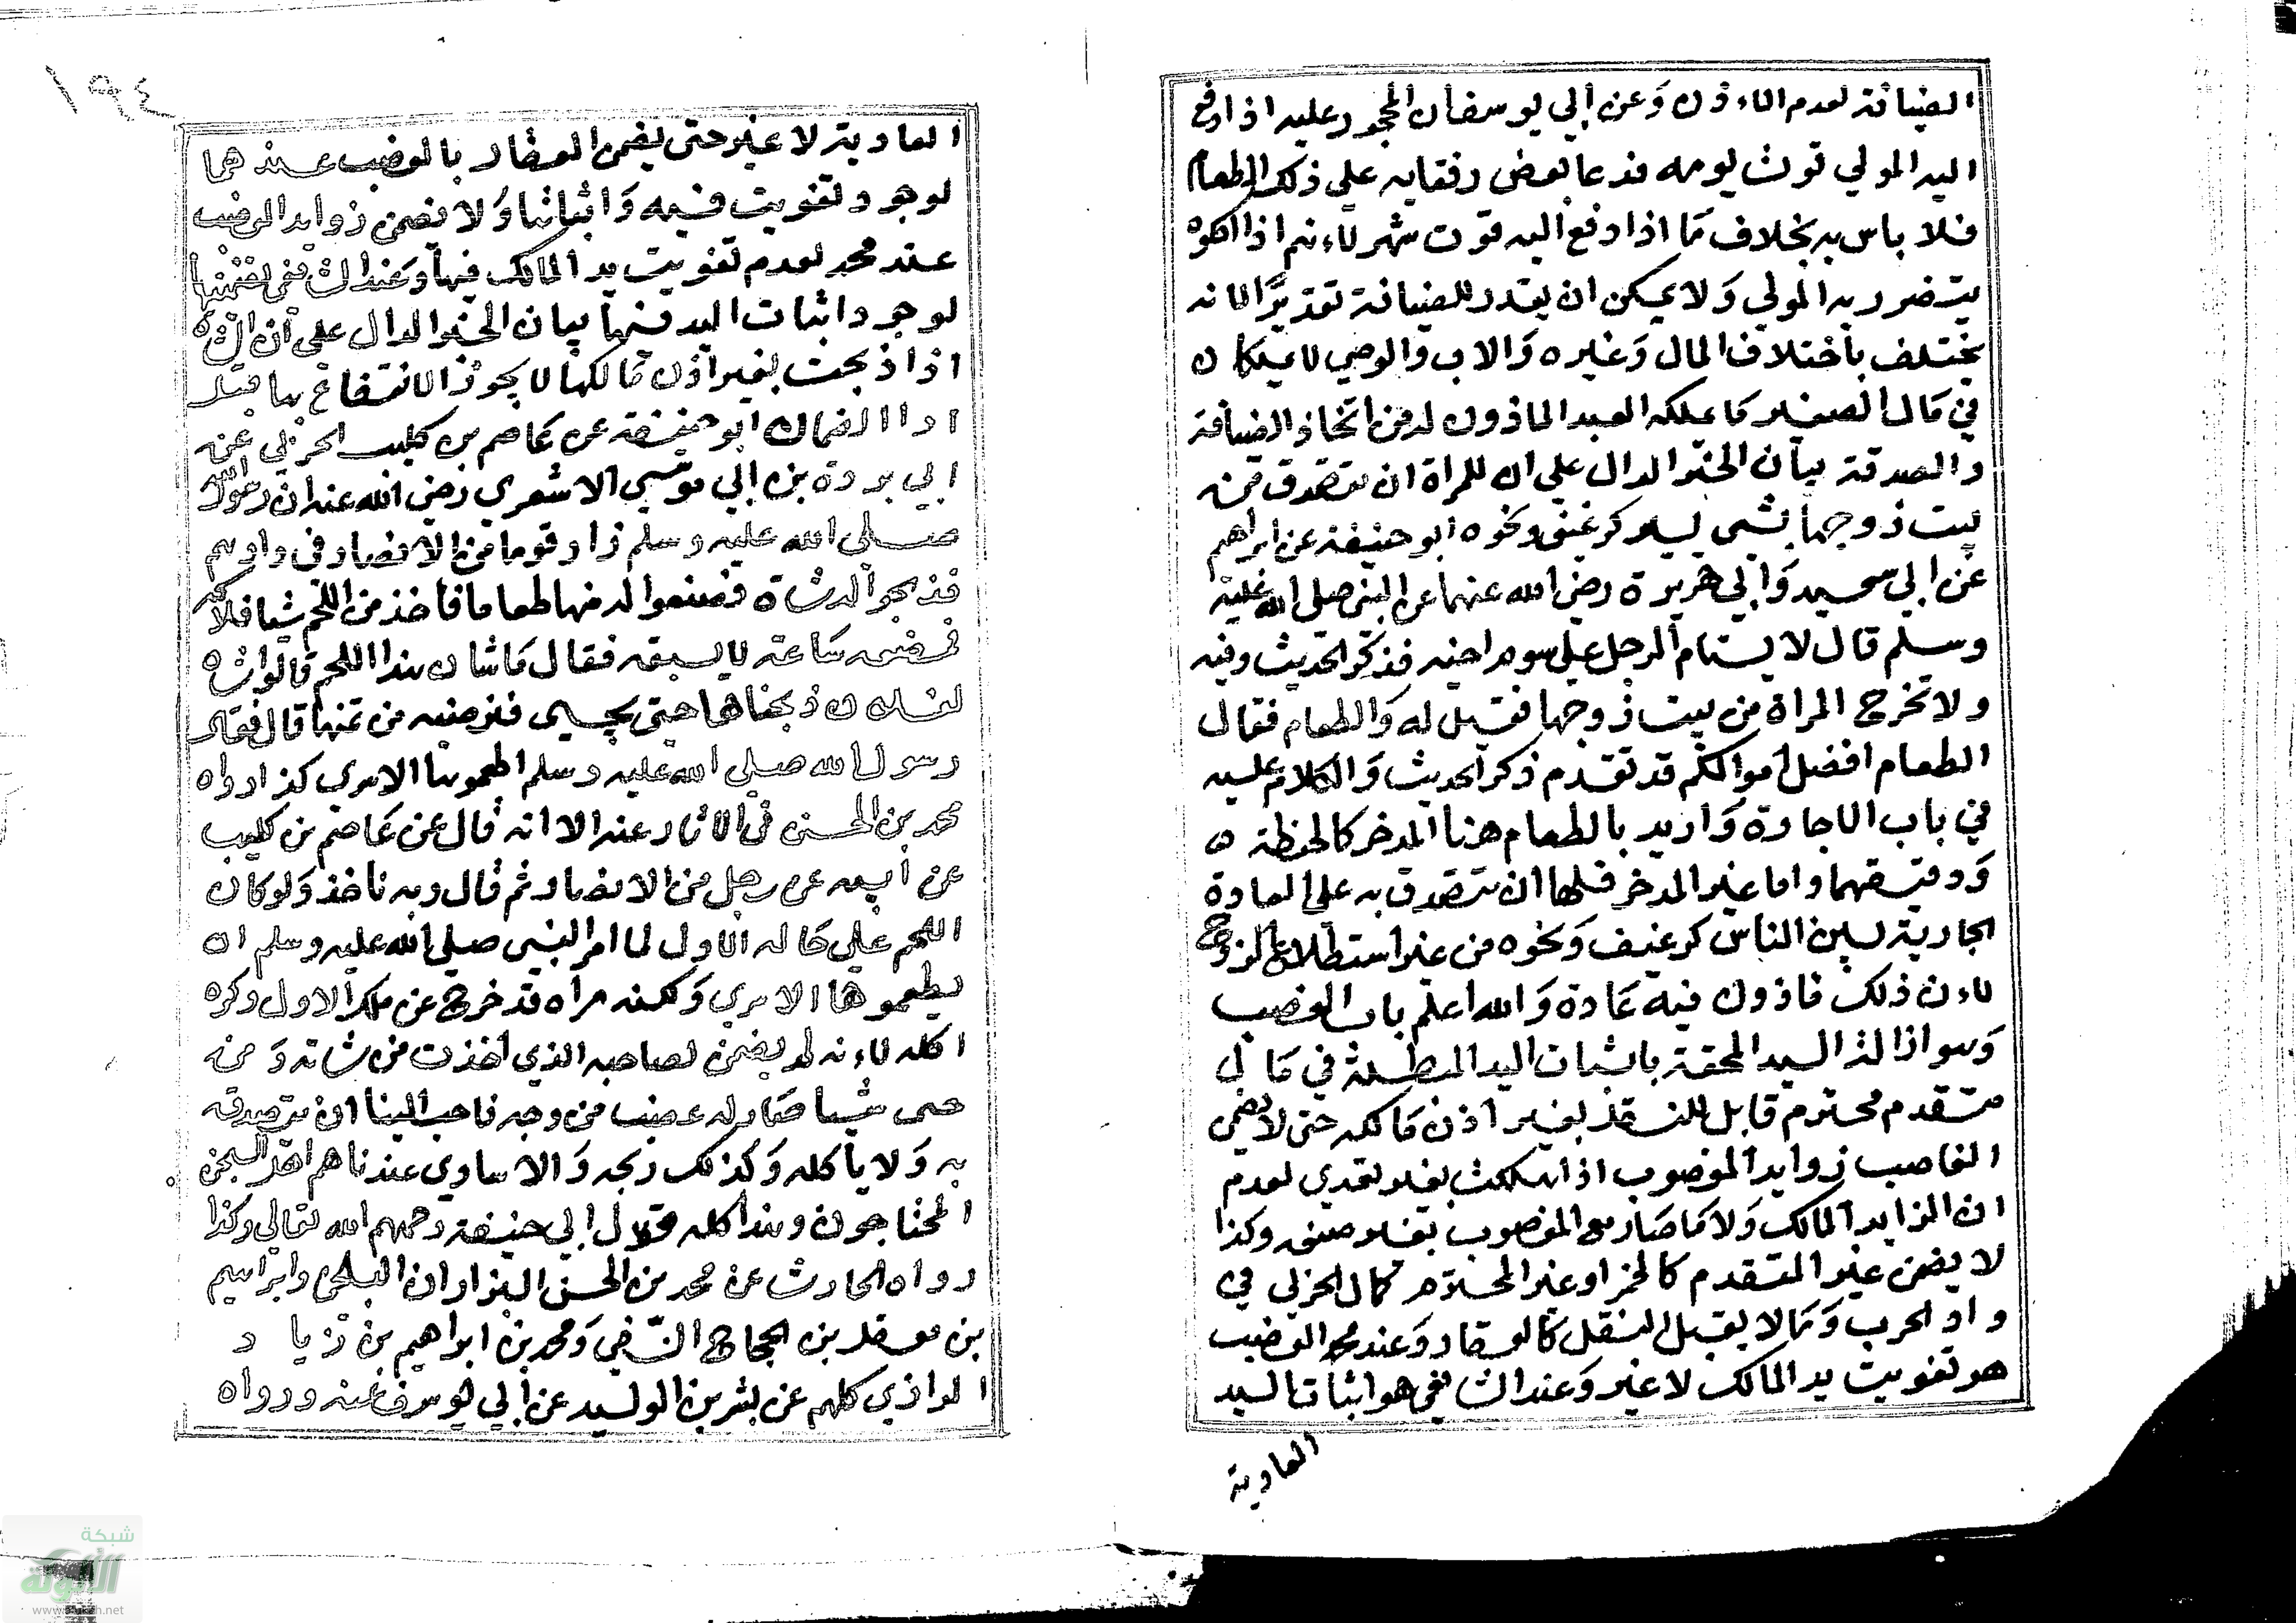 الضيافة لعدم الاءذن وَعن ابي يوسف ان المحجور عليه اذا دفع
اليه المولي قوت يومه فدعا بعض رفقايه علي ذلك الطعام
فلا باس به بخلاف مَا اذا دفع اليه قوت شهر لاءنهم اذا اكلوه
يتضرر به المولي وَلا يمكن ان يقدر للضيافة تقديرًا لانه
يختلف باختلاف المال وَغيره وَالاب وَالوصي لا يملكان
في مَال الصغير مَا يملكه العبد الماذون له من اتخاذ الضيافة
والصدقة بيان الخبر الدال علي ان للمراة ان تتصدق من
بيت زوجها بشي يسير كرغيف ونحوه ابو حنيفة عن ابراهيم
عن ابي سعيد وَابي هريرة رضي الله عنهما عن النبي صلي الله عليه
وسلم قال لا يستام الرجل علي سوم اخيه فذكر الحديث وفيه
ولا تخرج المراة من بيت زوجها فقيل له وَالطعام فقال
الطعام افضل اموالكم قد تقدم ذكر الحديث وَالكلام عليه
في باب الاجارة وَاريد بالطعام هنا المدخر كالحنطة
وَدقيقهما واما غير المدخر فلها ان تتصدق به علي العادة
الجارية بين الناس كرغيف وَنحوه من غير استطلاع الزوج
لاءن ذلك ماذون فيه عَادة وَالله اعلم باب الغصب
وَهو ازالة اليد المحقة باثبات اليد المبطلة في مَال
متقدم محترم قابل للنقل بغير اذن مَالكه حتي لا يضمن
الغاصب زوايد المغصوب اذا هلكت بغير تعدي لعدم
ان الزايد المالك وَلا مَا صَار مع المغصوب بغير صنعه وكذا
لا يضمن غير المتقدم كالخمر او غير المحترم كمال الحربي في
دار الحرب وَمَا لا يقبل النقل كالعقار وَعند محمد الغصب
هو تفويت يد المالك لا غير وَعند الشافعي هو اثبات اليد
العادية
١٩٤
العادية لا غير حتي يضمن العقار بالغصب عندهما
لوجود تفويت فيه وَاثباتا وَلا يضمن زوايد الغصب
عند محمد لعدم تفويت يد المالك فيها وَعند الشافعي يضمنها
لوجود اثبات اليد فيها بيان الخبر الدال علي ان الشاة
اذا ذبحت بغير اذن مَالكها لا يجوز الانتفاع بها قبل
اداا الضمان ابو حنيفة عن عَاصم بن كليب الجرمي عن
ابي بردة بن ابي موسي الاشعري رضي الله عنه ان رسول الله
صلي الله عليه وسلم زار قوما من الانصار في دارهم
فذبحوا له شاة فصنعوا له منها طعاما فاخذ من اللحم شيا فلاكه
فمضغه سَاعة لا يسيغه فقال مَا شان هذا اللحم قالوا شاة
لفلان ذبحناها حتي يجيي فنرضيه من ثمنها قال فقال
رسول الله صلي الله عليه وسلم اطعموها الاسري كذا رواه
محمد بن الحسن في الاثار عنه الا انه قال عن عَاصم بن كليب
عن ابيه عن رجل من الانصار ثم قال وبه ناخذ وَلو كان
اللحم علي حَاله الاول لما امر النبي صلي الله عليه وسلم ان
يطعموها الاسري وَلكنه رآه قد خرج عن ملك الاول وكره
اكله لاءنه لم يضمن لصاحبه الذي اخذت من شاته وَمن
ضمن شيا صَار له غصب من وجه فاحب الينا ان يتصدق
به وَلا ياكله وَكذلك ربحه وَالاساري عندنا هم اهل السجن
المحتاجون وهذا كله قول ابي حنيفة رحمهم الله تعالي وكذا
رواه الحارث عن محمد بن الحسن البزار ان البلخي وابراهيم
بن معقل بن الحجاج النسفي وَمحمد بن ابراهيم بن زياد
الرازي كلهم عن بشر بن الوليد عن ابي يوسف عنه ورواه
شبكة
الألوكة
www.alukah.net